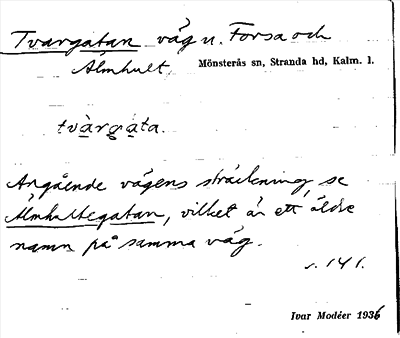 Tvargatan väg n. Forsa och
Älmhult, Mönsterås sn, Stranda hd, Kalm. l.
tvàrgata.
Angående vägens sträckning, se
Älmhultegatan, vilket är ett äldre
namn på samma väg.
s. 141.
Ivar Modéer 1936